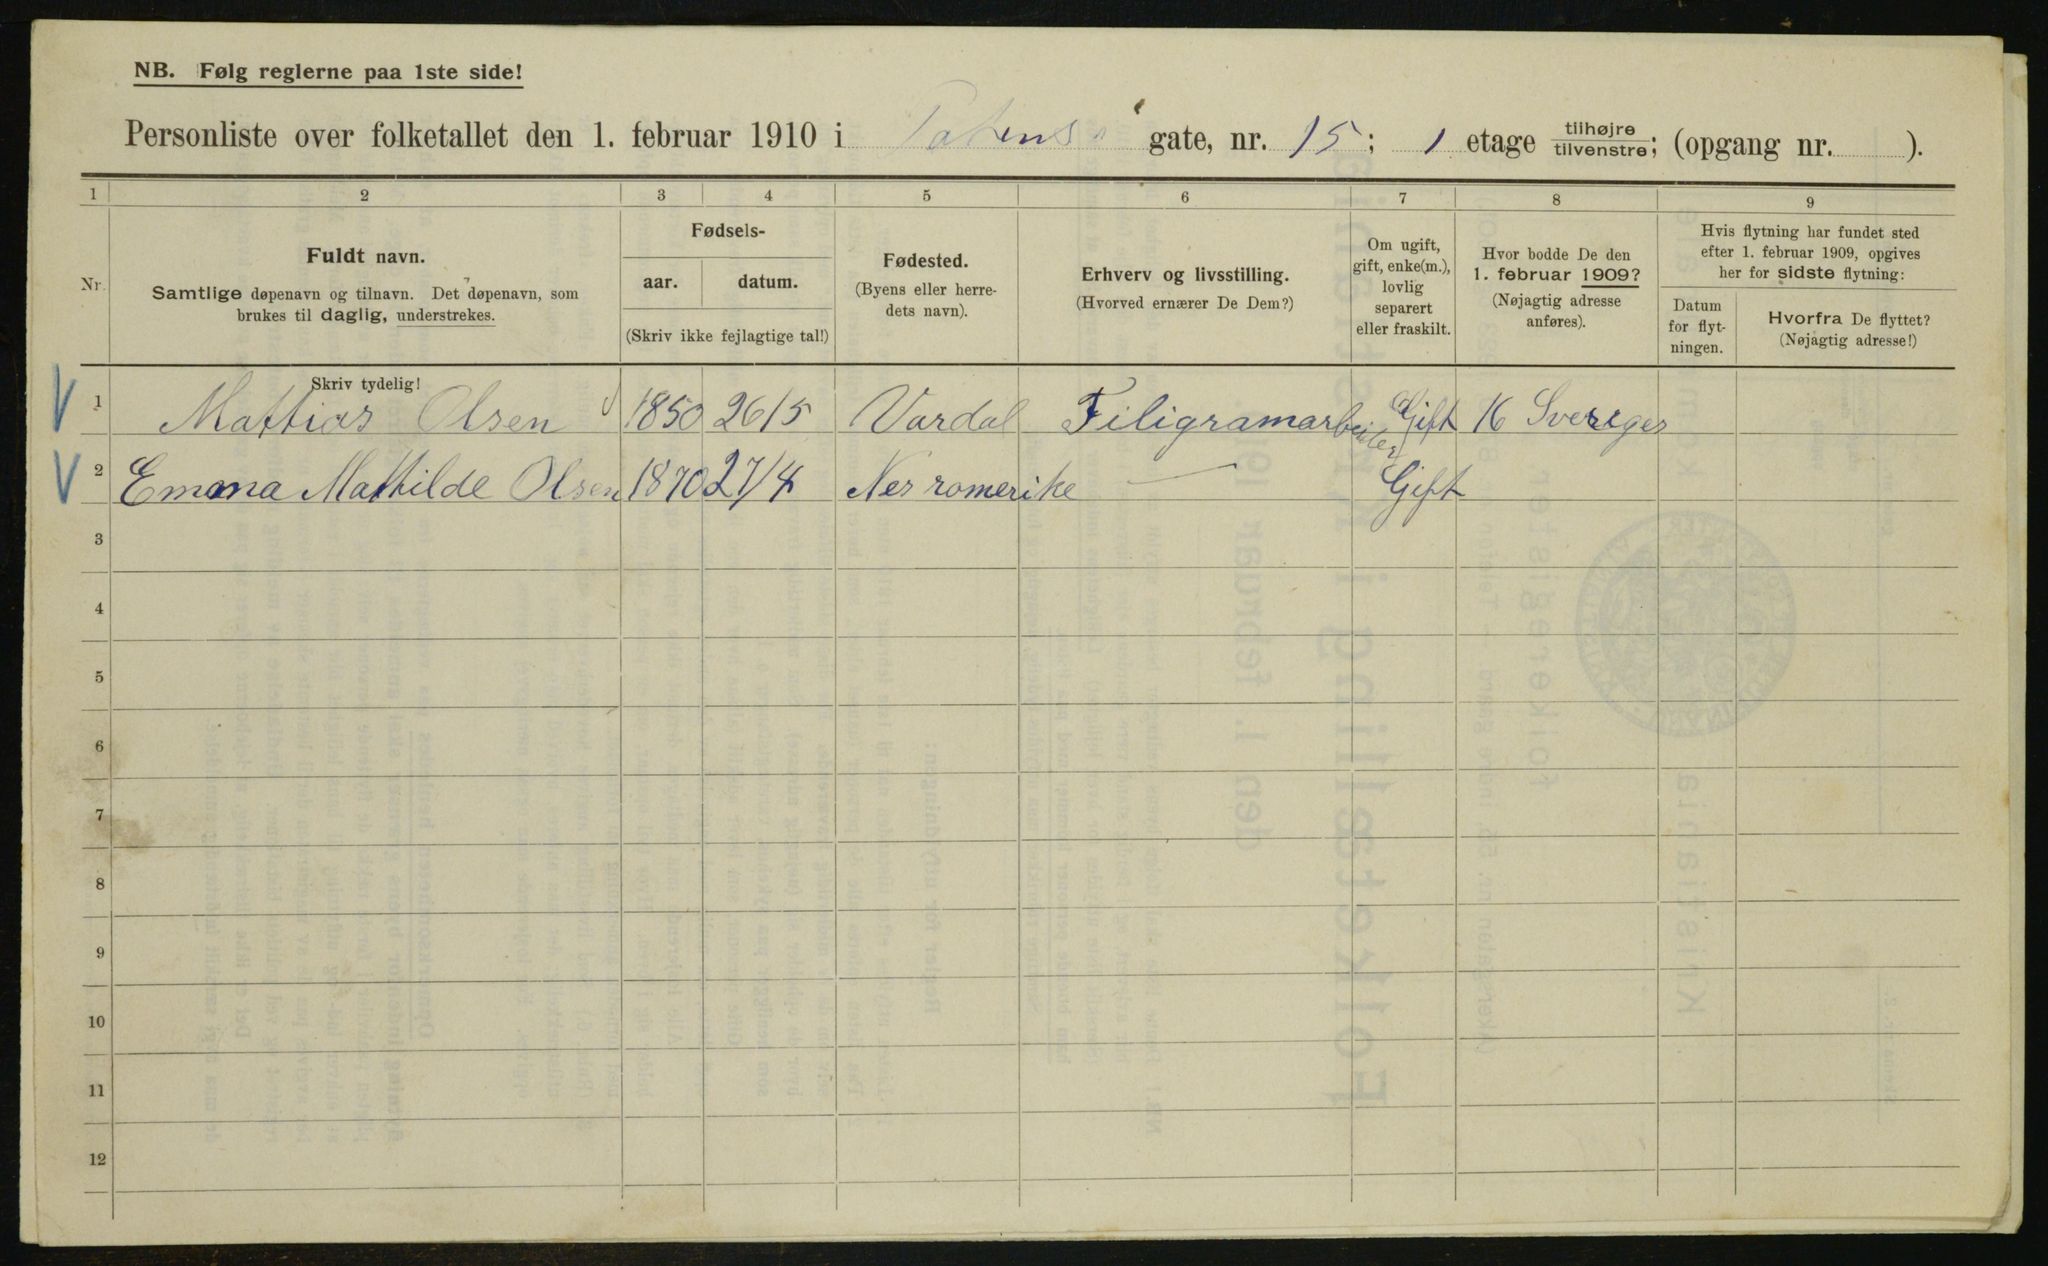 NB. Følg reglerne paa 1ste side!
Personliste over folketallet den 1. februar 1910 i Totens gate, nr. 15; 1 etage tilhøjre tilvenstre; (opgang nr. ).
1 2 3 4 5 6 7 8 9
Nr.
Fuldt navn.
Samtlige døpenavn og tilnavn. Det døpenavn, som
brukes til daglig, understrekes.
Fødsels-
aar. datum.
(Skriv ikke fejlagtige tal!)
Fødested.
(Byens eller herre-
dets navn).
Erhverv og livsstilling.
(Hvorved ernærer De Dem?)
Om ugift,
gift, enke(m.),
lovlig
separert
eller fraskilt.
Hvor bodde De den
1. februar 1909?
(Nøjagtig adresse
anføres).
Hvis flytning har fundet sted
efter 1. februar 1909, opgives
her for sidste flytning:
Datum
for flyt-
ningen.
Hvorfra De flyttet?
(Nøjagtig adresse!)
Skriv tydelig!
1 Mattias Olsen 1850 26/5 Vardal Filigramarbeider Gift 16 Sveriges
2 Emma Mathilde Olsen 1870 27/4 Nes romerike — Gift
3
4
5
6
7
8
9
10
11
12